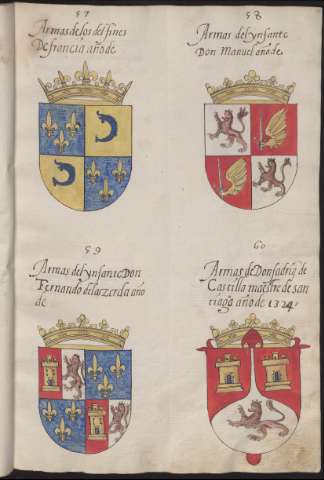 57
Armas de los delfines
De francia año de
58
Armas del ynfante
Don Manuel año de
59
Armas del ynfante Don
Fernando dela zerda año
de
60
Armas de Don fadriq̃ de
Castilla maestre de san
tiago año de 1324